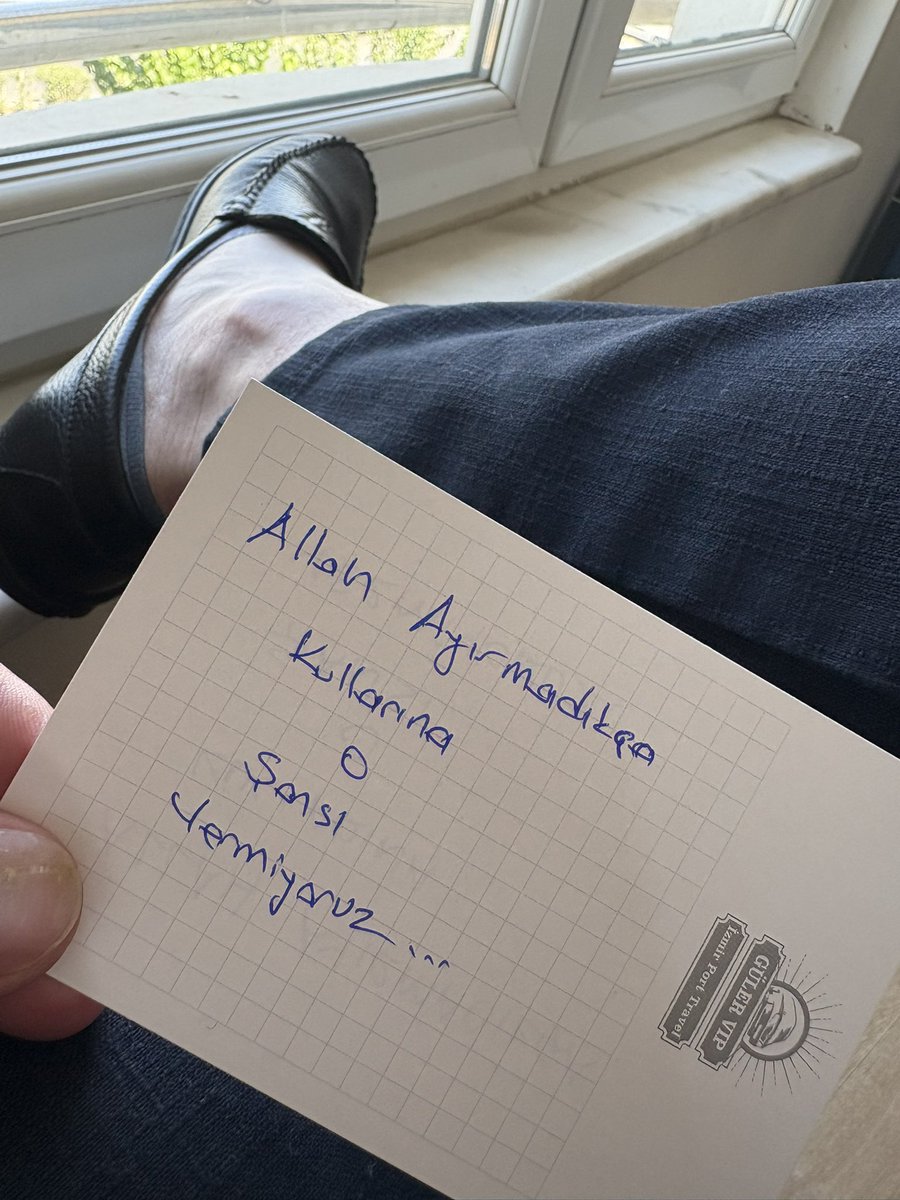 Allah Ayırmadıkça
Kullarına
O
Şansı
Vermiyoruz...
GÜLER VIP
İzmir Port Travel